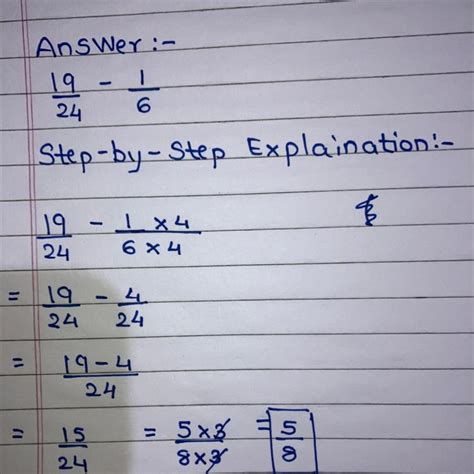 Answer :-
19/24 - 1/6
Step-by-Step Explaination:-
19/24 - 1 × 4/6 × 4
= 19/24 - 4/24
= 19 - 4/24
= 15/24 = 5 × 3/8 × 3 = 5/8